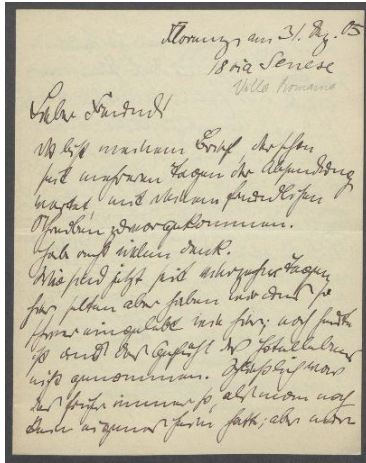 Florenz, am 31. Dez. 05
18 via Senese
Villa Romana
Lieber Freund!
Du bist meinem Brief der schon
seit mehreren Tagen der Absendung
wartet mit Deinem freundlichen
Schreiben zuvorgekommen.
Hab recht vielen Dank.
Wir sind jetzt seit vierzehn Tagen
hier, selten aber haben wir uns so
schwer eingelebt wie hier; noch heute
ist mir das Gefühl des Hotellebens
nicht genommen. Schließlich war
das früher immer so, als man noch
kein eigenes Heim hatte; aber